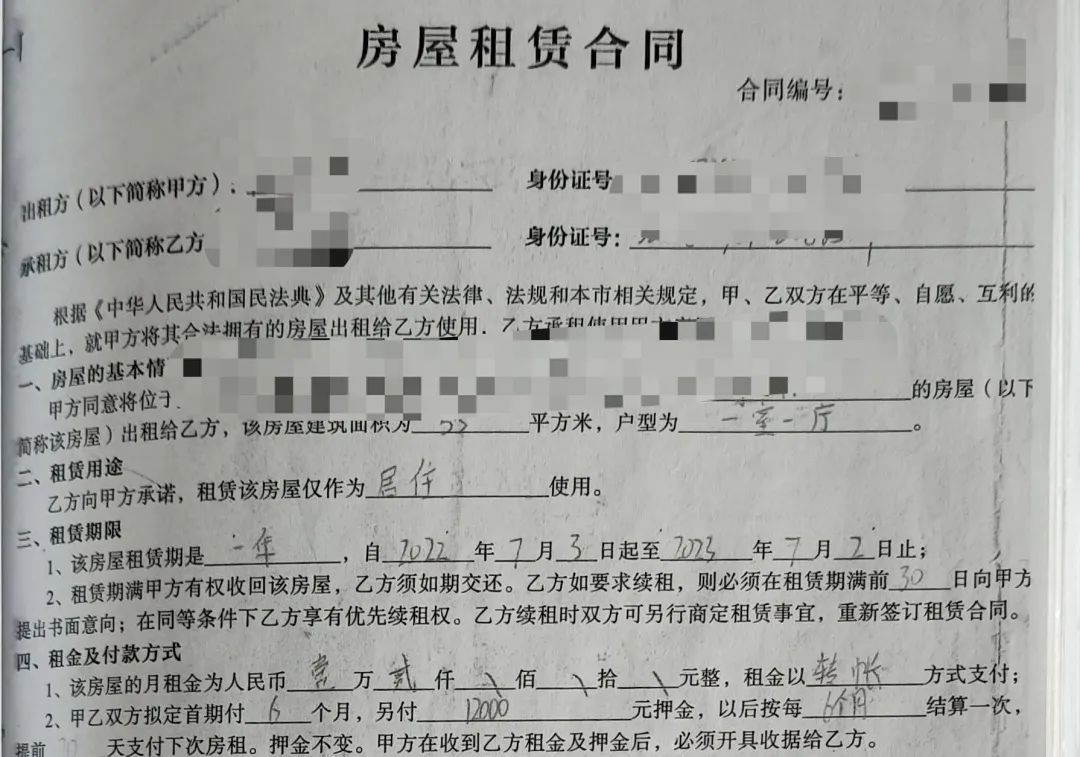 房屋租赁合同
合同编号:
出租方(以下简称甲方): 身份证号
承租方(以下简称乙方 身份证号:
根据《中华人民共和国民法典》及其他有关法律、法规和本市相关规定,甲、乙双方在平等、自愿、互利的
基础上,就甲方将其合法拥有的房屋出租给乙方使用.乙方承租使用甲方
一、房屋的基本情
甲方同意将位于 的房屋(以下
简称该房屋)出租给乙方,该房屋建筑面积为 平方米,户型为一室一厅。
二、租赁用途
乙方向甲方承诺,租赁该房屋仅作为居住使用。
三、租赁期限
1、该房屋租赁期是一年,自2022年7月3日起至2023年7月2日止;
2、租赁期满甲方有权收回该房屋,乙方须如期交还。乙方如要求续租,则必须在租赁期满前30日向甲方
提出书面意向;在同等条件下乙方享有优先续租权。乙方续租时双方可另行商定租赁事宜,重新签订租赁合同。
四、租金及付款方式
1、该房屋的月租金为人民币壹万贰仟\佰\拾\元整,租金以转帐方式支付;
2、甲乙双方拟定首期付6个月,另付12000元押金,以后按每6个月结算一次,
提前 天支付下次房租。押金不变。甲方在收到乙方租金及押金后,必须开具收据给乙方。